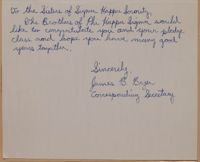 To the Sisters of Sigma Kappa Sorority,
The Brothers of Phi Kappa Sigma would
like to congratulate you and your pledge
class and hope you have many good
years together.
Sincerely,
James B.
Corresponding Secretary